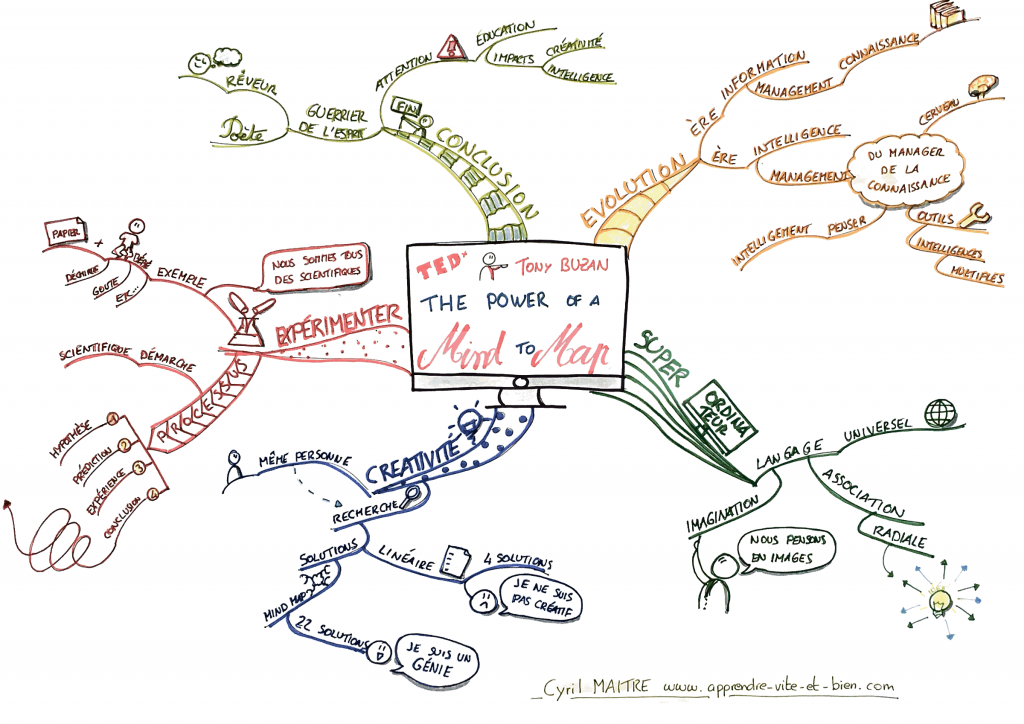 TEDx TONY BUZAN
THE POWER OF A
Mind TO Map
EVOLUTION
ÈRE INFORMATION
MANAGEMENT CONNAISSANCE
ÈRE INTELLIGENCE
MANAGEMENT
DU MANAGER
DE LA
CONNAISSANCE
CERVEAU
OUTILS
INTELLIGENCES
MULTIPLES
INTELLIGEMMENT PENSER
SUPER
ORDINA
TEUR
LANGAGE UNIVERSEL
ASSOCIATION
RADIALE
IDÉE
IMAGINATION
NOUS PENSONS
EN IMAGES
CREATIVITÉ
MÊME PERSONNE
RECHERCHE
SOLUTIONS
LINÉAIRE
4 SOLUTIONS
JE NE SUIS
PAS CRÉATIF
MIND MAP
22 SOLUTIONS
JE SUIS UN
GÉNIE
EXPÉRIMENTER
NOUS SOMMES TOUS
DES SCIENTIFIQUES
EXEMPLE
BÉBÉ
+
PAPIER
DÉCHIRE
GOUTE
ETC...
PROCESSUS
SCIENTIFIQUE DÉMARCHE
HYPOTHÈSE 1
PRÉDICTION 2
EXPÉRIENCE 3
CONCLUSION 4
CONCLUSION
FIN
ATTENTION !
ÉDUCATION
IMPACTS
CRÉATIVITÉ
INTELLIGENCE
GUERRIER
DE L'ESPRIT
RÊVEUR
Poète
Cyril MAITRE www.apprendre-vite-et-bien.com